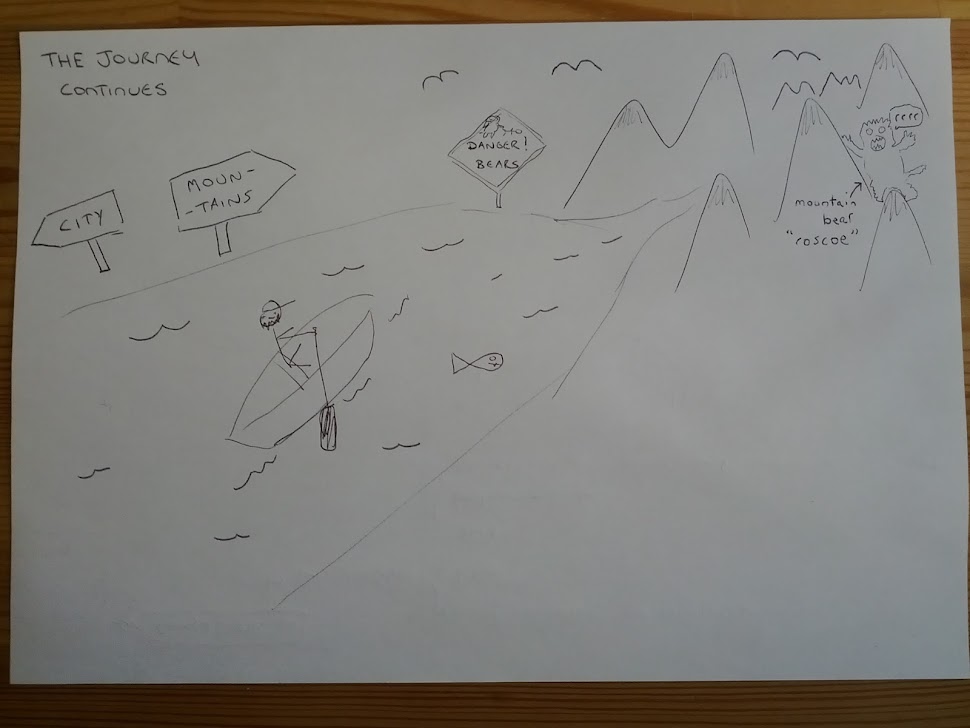 THE JOURNEY
CONTINUES
CITY
MOUN-
-TAINS
DANGER!
BEARS
rrrr
mountain
bear
"roscoe"